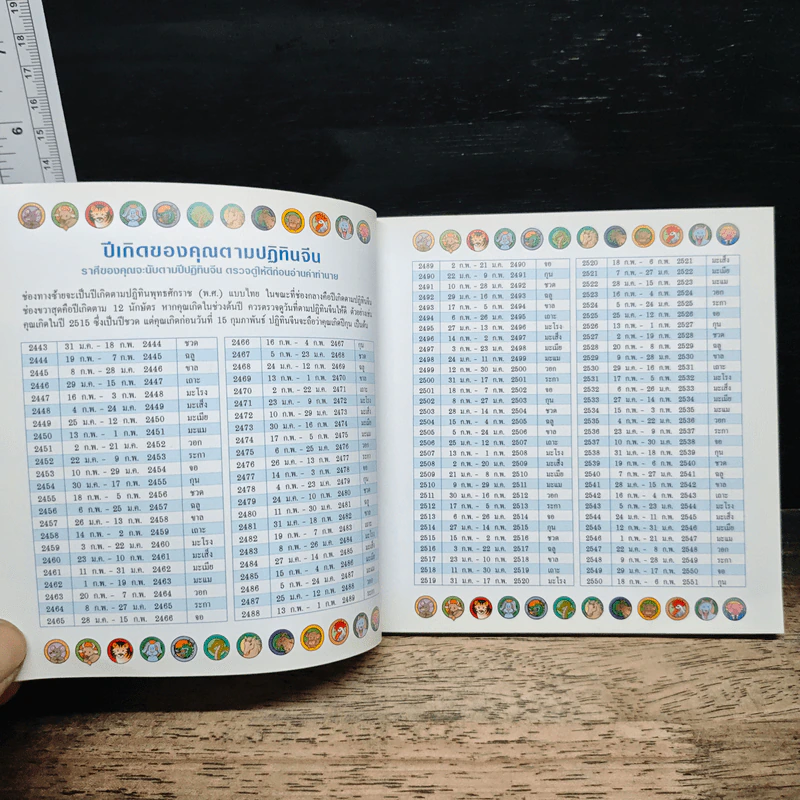 ปีเกิดของคุณตามปฏิทินจีน
ราศีของคุณจะนับตามปีปฏิทินจีน ตรวจดูให้ดีก่อนอ่านคำทำนาย
ช่องทางซ้ายจะเป็นปีเกิดตามปฏิทินพุทธศักราช (พ.ศ.) แบบไทย ในขณะที่ช่องกลางคือปีเกิดตามปฏิทินจีน
ช่องขวาสุดคือปีเกิดตาม 12 นักษัตร หากคุณเกิดในช่วงต้นปี ควรตรวจดูวันที่ตามปฏิทินจีนให้ดี ตัวอย่างเช่น
คุณเกิดในปี 2515 ซึ่งเป็นปีชวด แต่คุณเกิดก่อนวันที่ 15 กุมภาพันธ์ ปฏิทินจีนจะถือว่าคุณเกิดปีกุน เป็นต้น
2443 31 ม.ค. - 18 ก.พ. 2444 ชวด
2444 19 ก.พ. - 7 ก.พ. 2445 ฉลู
2445 8 ก.พ. - 28 ม.ค. 2446 ขาล
2446 29 ม.ค. - 15 ก.พ. 2447 เถาะ
2447 16 ก.พ. - 3 ก.พ. 2448 มะโรง
2448 4 ก.พ. - 24 ม.ค. 2449 มะเส็ง
2449 25 ม.ค. - 12 ก.พ. 2450 มะเมีย
2450 13 ก.พ. - 1 ก.พ. 2451 มะแม
2451 2 ก.พ. - 21 ม.ค. 2452 วอก
2452 22 ม.ค. - 9 ก.พ. 2453 ระกา
2453 10 ก.พ. - 29 ม.ค. 2454 จอ
2454 30 ม.ค. - 17 ก.พ. 2455 กุน
2455 18 ก.พ. - 5 ก.พ. 2456 ชวด
2456 6 ก.พ. - 25 ม.ค. 2457 ฉลู
2457 26 ม.ค. - 13 ก.พ. 2458 ขาล
2458 14 ก.พ. - 2 ก.พ. 2459 เถาะ
2459 3 ก.พ. - 22 ม.ค. 2460 มะโรง
2460 23 ม.ค. - 10 ก.พ. 2461 มะเส็ง
2461 11 ก.พ. - 31 ม.ค. 2462 มะเมีย
2462 1 ก.พ. - 19 ก.พ. 2463 มะแม
2463 20 ก.พ. - 7 ก.พ. 2464 วอก
2464 8 ก.พ. - 27 ม.ค. 2465 ระกา
2465 28 ม.ค. - 15 ก.พ. 2466 จอ
2466 16 ก.พ. - 4 ก.พ. 2467 กุน
2467 5 ก.พ. - 23 ม.ค. 2468 ชวด
2468 24 ม.ค. - 12 ก.พ. 2469 ฉลู
2469 13 ก.พ. - 1 ก.พ. 2470 ขาล
2470 2 ก.พ. - 22 ม.ค. 2471 เถาะ
2471 23 ม.ค. - 9 ก.พ. 2472 มะโรง
2472 10 ก.พ. - 29 ม.ค. 2473 มะเส็ง
2473 30 ม.ค. - 16 ก.พ. 2474 มะเมีย
2474 17 ก.พ. - 5 ก.พ. 2475 มะแม
2475 6 ก.พ. - 25 ม.ค. 2476 วอก
2476 26 ม.ค. - 13 ก.พ. 2477 ระกา
2477 14 ก.พ. - 3 ก.พ. 2478 จอ
2478 4 ก.พ. - 23 ม.ค. 2479 กุน
2479 24 ม.ค. - 10 ก.พ. 2480 ชวด
2480 11 ก.พ. - 30 ม.ค. 2481 ฉลู
2481 31 ม.ค. - 18 ก.พ. 2482 ขาล
2482 19 ก.พ. - 7 ก.พ. 2483 เถาะ
2483 8 ก.พ. - 26 ม.ค. 2484 มะโรง
2484 27 ม.ค. - 14 ก.พ. 2485 มะเส็ง
2485 15 ก.พ. - 4 ก.พ. 2486 มะเมีย
2486 5 ก.พ. - 24 ม.ค. 2487 มะแม
2487 25 ม.ค. - 12 ก.พ. 2488 วอก
2488 13 ก.พ. - 1 ก.พ. 2489 ระกา
2489 2 ก.พ. - 21 ม.ค. 2490 จอ
2490 22 ม.ค. - 9 ก.พ. 2491 กุน
2491 10 ก.พ. - 28 ม.ค. 2492 ชวด
2492 29 ม.ค. - 16 ก.พ. 2493 ฉลู
2493 17 ก.พ. - 5 ก.พ. 2494 ขาล
2494 6 ก.พ. - 26 ม.ค. 2495 เถาะ
2495 27 ม.ค. - 13 ก.พ. 2496 มะโรง
2496 14 ก.พ. - 2 ก.พ. 2497 มะเส็ง
2497 3 ก.พ. - 23 ม.ค. 2498 มะเมีย
2498 24 ม.ค. - 11 ก.พ. 2499 มะแม
2499 12 ก.พ. - 30 ม.ค. 2500 วอก
2500 31 ม.ค. - 17 ก.พ. 2501 ระกา
2501 18 ก.พ. - 7 ก.พ. 2502 จอ
2502 8 ก.พ. - 27 ม.ค. 2503 กุน
2503 28 ม.ค. - 14 ก.พ. 2504 ชวด
2504 15 ก.พ. - 4 ก.พ. 2505 ฉลู
2505 5 ก.พ. - 24 ม.ค. 2506 ขาล
2506 25 ม.ค. - 12 ก.พ. 2507 เถาะ
2507 13 ก.พ. - 1 ก.พ. 2508 มะโรง
2508 2 ก.พ. - 20 ม.ค. 2509 มะเส็ง
2509 21 ม.ค. - 8 ก.พ. 2510 มะเมีย
2510 9 ก.พ. - 29 ม.ค. 2511 มะแม
2511 30 ม.ค. - 16 ก.พ. 2512 วอก
2512 17 ก.พ. - 5 ก.พ. 2513 ระกา
2513 6 ก.พ. - 26 ม.ค. 2514 จอ
2514 27 ม.ค. - 14 ก.พ. 2515 กุน
2515 15 ก.พ. - 2 ก.พ. 2516 ชวด
2516 3 ก.พ. - 22 ม.ค. 2517 ฉลู
2517 23 ม.ค. - 10 ก.พ. 2518 ขาล
2518 11 ก.พ. - 30 ม.ค. 2519 เถาะ
2519 31 ม.ค. - 17 ก.พ. 2520 มะโรง
2520 18 ก.พ. - 6 ก.พ. 2521 มะเส็ง
2521 7 ก.พ. - 27 ม.ค. 2522 มะเมีย
2522 28 ม.ค. - 15 ก.พ. 2523 มะแม
2523 16 ก.พ. - 4 ก.พ. 2524 วอก
2524 5 ก.พ. - 24 ม.ค. 2525 ระกา
2525 25 ม.ค. - 12 ก.พ. 2526 จอ
2526 13 ก.พ. - 1 ก.พ. 2527 กุน
2527 2 ก.พ. - 19 ก.พ. 2528 ชวด
2528 20 ก.พ. - 8 ก.พ. 2529 ฉลู
2529 9 ก.พ. - 28 ม.ค. 2530 ขาล
2530 29 ม.ค. - 16 ก.พ. 2531 เถาะ
2531 17 ก.พ. - 5 ก.พ. 2532 มะโรง
2532 6 ก.พ. - 26 ม.ค. 2533 มะเส็ง
2533 27 ม.ค. - 14 ก.พ. 2534 มะเมีย
2534 15 ก.พ. - 3 ก.พ. 2535 มะแม
2535 4 ก.พ. - 22 ม.ค. 2536 วอก
2536 23 ม.ค. - 9 ก.พ. 2537 ระกา
2537 10 ก.พ. - 30 ม.ค. 2538 จอ
2538 31 ม.ค. - 18 ก.พ. 2539 กุน
2539 19 ก.พ. - 6 ก.พ. 2540 ชวด
2540 7 ก.พ. - 27 ม.ค. 2541 ฉลู
2541 28 ม.ค. - 15 ก.พ. 2542 ขาล
2542 16 ก.พ. - 4 ก.พ. 2543 เถาะ
2543 5 ก.พ. - 23 ม.ค. 2544 มะโรง
2544 24 ม.ค. - 11 ก.พ. 2545 มะเส็ง
2545 12 ก.พ. - 31 ม.ค. 2546 มะเมีย
2546 1 ก.พ. - 21 ม.ค. 2547 มะแม
2547 22 ม.ค. - 8 ก.พ. 2548 วอก
2548 9 ก.พ. - 28 ม.ค. 2549 ระกา
2549 29 ม.ค. - 17 ก.พ. 2550 จอ
2550 18 ก.พ. - 6 ก.พ. 2551 กุน